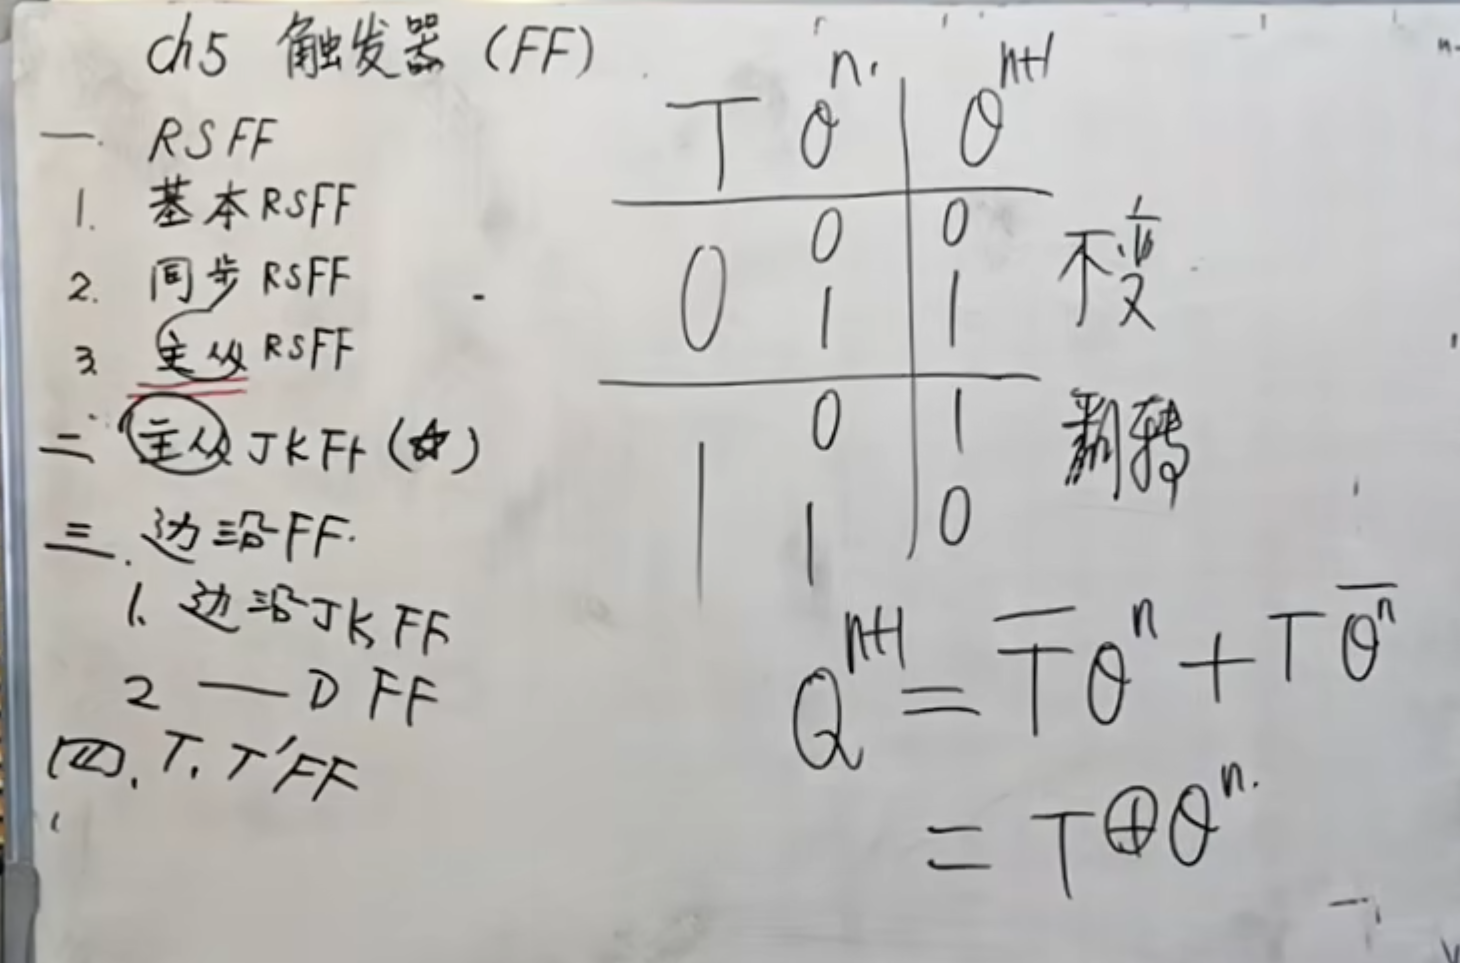 ch5 触发器 (FF)
一. RSFF
1. 基本RSFF
2. 同步RSFF
3. 主从RSFF
二. 主从JKFF (☆)
三. 边沿FF.
1. 边沿JKFF
2 — D FF
四. T. T'FF
T Qⁿ Qⁿ⁺¹
0 0 0 不变
1 1
1 0 1 翻转
1 0
Qⁿ⁺¹ = T̅Qⁿ + TQ̅ⁿ
= T⊕Qⁿ.